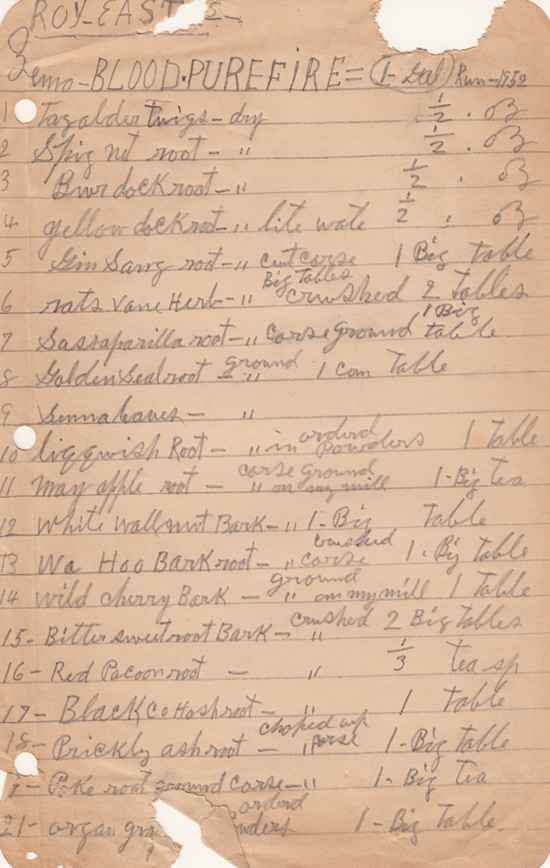 ROY-EAST
Memo-BLOOD.PUREFIRE= 1-Gal Run-1952
1 Tagalder twigs-dry 1/2 . oz
2 Spig net root- " 1/2 . oz
3 Burdockroot- " 1/2 . oz
4 yellow dockroot- " lite wate 1/2 . oz
5 GinSang root- " cutcorse 1 Big table
6 rats vane Herb- " Big Tables crushed 2 Tables
7 Sassaparilla root- " corse ground 1 Big table
8 GoldenSealroot - " ground 1 com Table
9 Sennaleaves - "
10 liqquish Root- " in orderd Powders 1 Table
11 may apple root - " corse ground on my mill 1-Big tea
12 White wallnut Bark- " 1-Big Table
13 Wa Hoo Barkroot- " crushed corse 1-Big Table
14 wild cherry Bark - " ground on my mill 1 Table
15-Bittersweetroot Bark- " crushed 2 Big Tables
16-Red Pacoonroot - " 1/3 tea sp
17-Black CoHoshroot- " 1 Table
18-Prickly ashroot - " choped up corse 1-Big Table
Poke root ground corse- " 1-Big Tea
21-organ orderd 1-Big Table